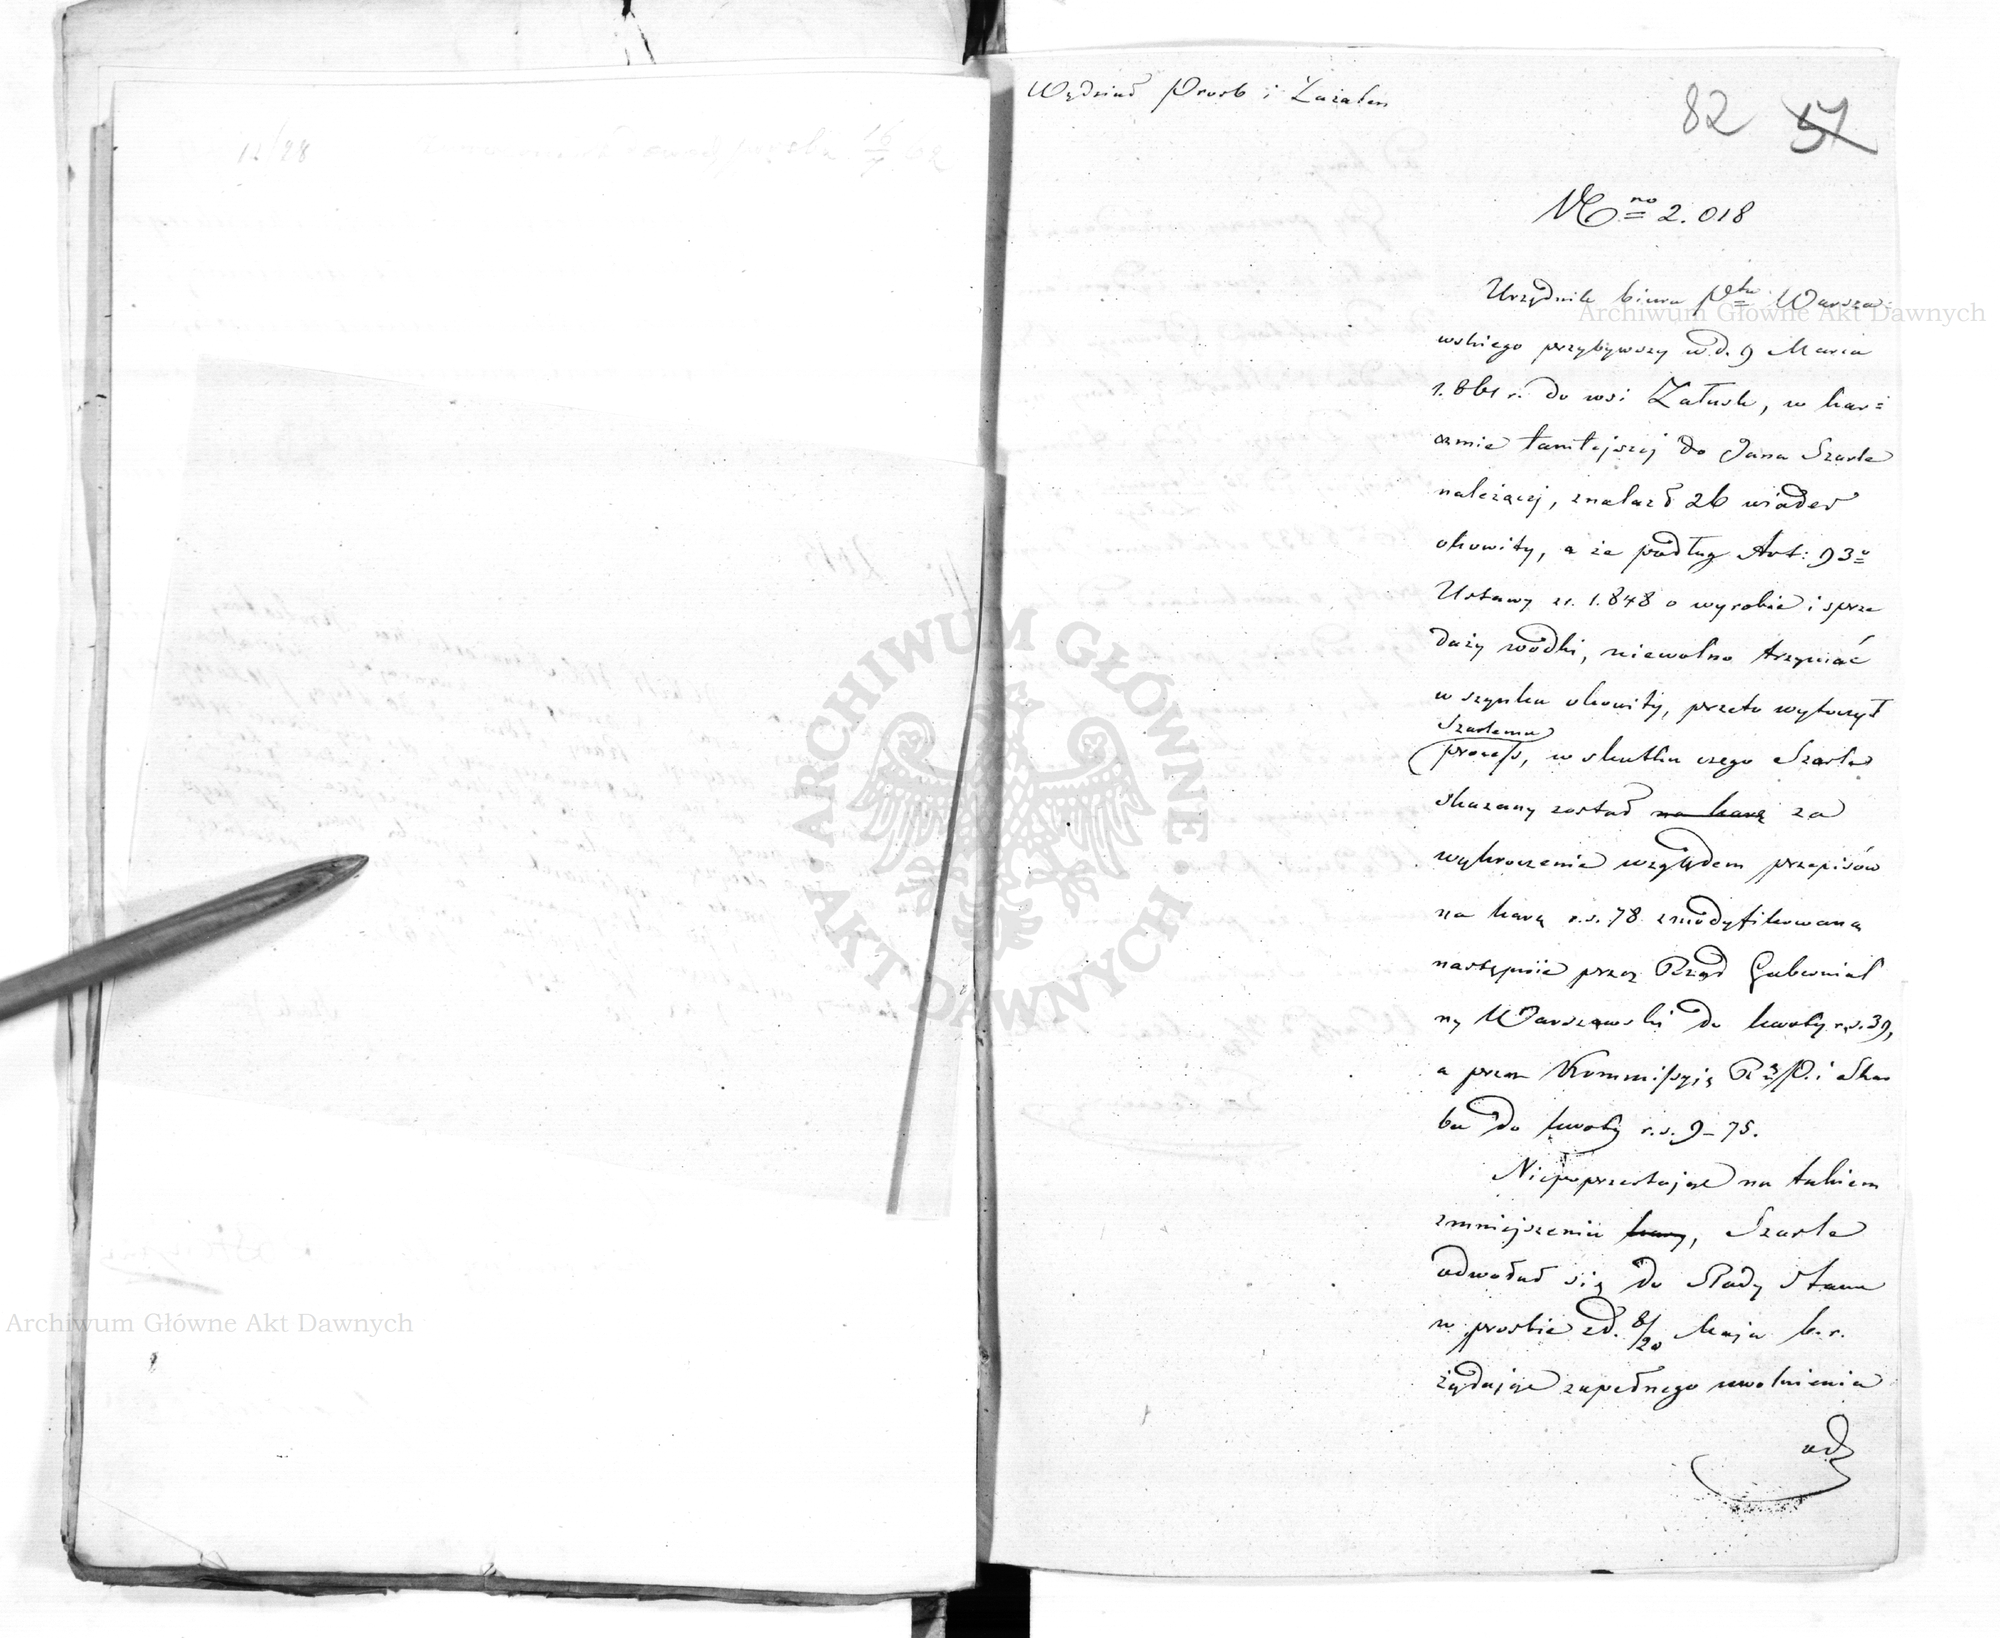 Wydział Prosb i Zażaleń
82 57
No 2.018
Urzędnik biura Ptu Warsza=
wskiego przybywszy w d. 9 Marca
1.861 r. do wsi Załusk, w kar=
czmie tamtejszej do Jana Szarle
należącej, znalazł 26 wiader
okowity, a że podług Art: 93o
Ustawy z r. 1.848 o wyrobie i sprze
daży wódki, niewolno trzymać
w szynku okowity, przeto wytoczył
Szarlemu
process, w skutku czego Szarle
skazany został na karę za
wykroczenie względem przepisów
na karę r.s. 78 zmodyfikowaną
następnie przez Rząd Gubernial
ny Warszawski do kwoty r.s. 39,
a przez Kommissyję R. P. i Skar
bu do kwoty r.s. 9-75.
Niepoprzestając na takiem
zmniejszeniu kary, Szarle
odwołał się do Rady Stanu
w prośbie z d. 8/20 Maja b.r.
żądając zupełnego uwolnienia
od
12/28
ARCHIWUM GŁÓWNE
AKT DAWNYCH
Archiwum Główne Akt Dawnych
Archiwum Główne Akt Dawnych